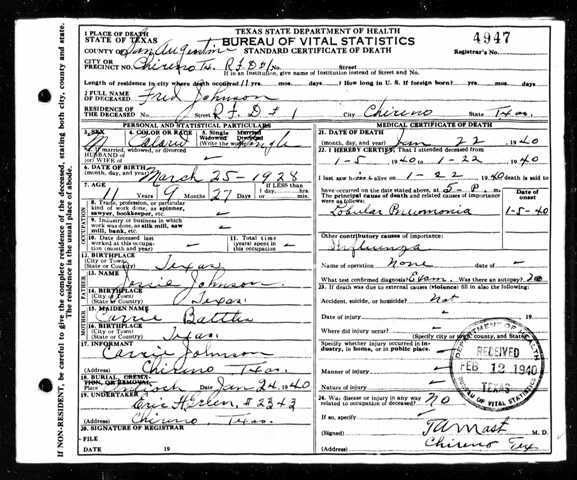 TEXAS STATE DEPARTMENT OF HEALTH
BUREAU OF VITAL STATISTICS
STANDARD CERTIFICATE OF DEATH
4947
Registrar's No.
1 PLACE OF DEATH
STATE OF TEXAS
COUNTY OF San Augustine
CITY OR PRECINCT NO. Chireno Tx. R.F.D. #1 No. Street
If in an Institution, give name of Institution instead of Street and No.
Length of residence in city where death occurred 11 yrs. mos. days. How long in U. S. if foreign born? yrs. mos. days
2 FULL NAME OF DECEASED Fred Johnson
RESIDENCE OF THE DECEASED Street R F D # 1 City Chireno State Texas
PERSONAL AND STATISTICAL PARTICULARS
3. SEX M
4. COLOR OR RACE
5. Single Married Widowed Divorced (Write the word) Single
If married, widowed, or divorced
HUSBAND OF (or) WIFE OF
6. DATE OF BIRTH
(month, day, and year) March 25-1928
7. AGE 11 Years 9 Months 27 Days If LESS than 1 day, hrs. or min.
OCCUPATION
8. Trade, profession, or particular kind of work done, as spinner, sawyer, bookkeeper, etc.
9. Industry or business in which work was done, as silk mill, saw mill, bank, etc.
10. Date deceased last worked at this occupation (month and year)
11. Total time (years) spent in this occupation
12. BIRTHPLACE
(City or Town)
(State or County) Texas
FATHER
13. NAME Jessie Johnson
14. BIRTHPLACE
(City or Town)
(State or County) Texas
MOTHER
15. MAIDEN NAME Carrie
16. BIRTHPLACE
(City or Town)
(State or County) Texas
17. INFORMANT Carrie Johnson
(Address) Chireno Texas.
18. BURIAL, CREMATION, OR REMOVAL
Place Date Jan 24, 1940
19. UNDERTAKER
# 2343
(Address) Chireno, Texas.
20. SIGNATURE OF REGISTRAR
FILE
DATE 19
MEDICAL CERTIFICATE OF DEATH
21. DATE OF DEATH
(month, day, and year) Jan 22, 1940
22. I HEREBY CERTIFY, That I attended deceased from
1-5, 1940, 1-22, 1940
I last saw him alive on 1-22 1940 death is said to
have occurred on the date stated above at 5-P. m.
The principal cause of death and related causes of importance were as follows:
Date of onset
Lobular Pneumonia 1-5-40
Other contributory causes of importance:
Influenza
Name of operation None
What test confirmed diagnosis? Exam. Was there an autopsy? No
23. If death was due to external causes (violence) fill in also the following:
Accident, suicide, or homicide? Not
Date of injury 19
Where did injury occur?
(Specify city or town, county, and State)
Specify whether injury occurred in industry, in home, or in public place.
Manner of injury
Nature of injury
24. Was disease or injury in any way related to occupation of deceased? NO
If so, specify
(Signed) M. D.
(Address) Chireno Tex
DEPARTMENT OF HEALTH
RECEIVED
FEB 12 1940
TEXAS
BUREAU OF VITAL STATISTICS
If NON-RESIDENT, be careful to give the complete residence of the deceased, stating both city, county and state.
The residence is the usual place of abode.